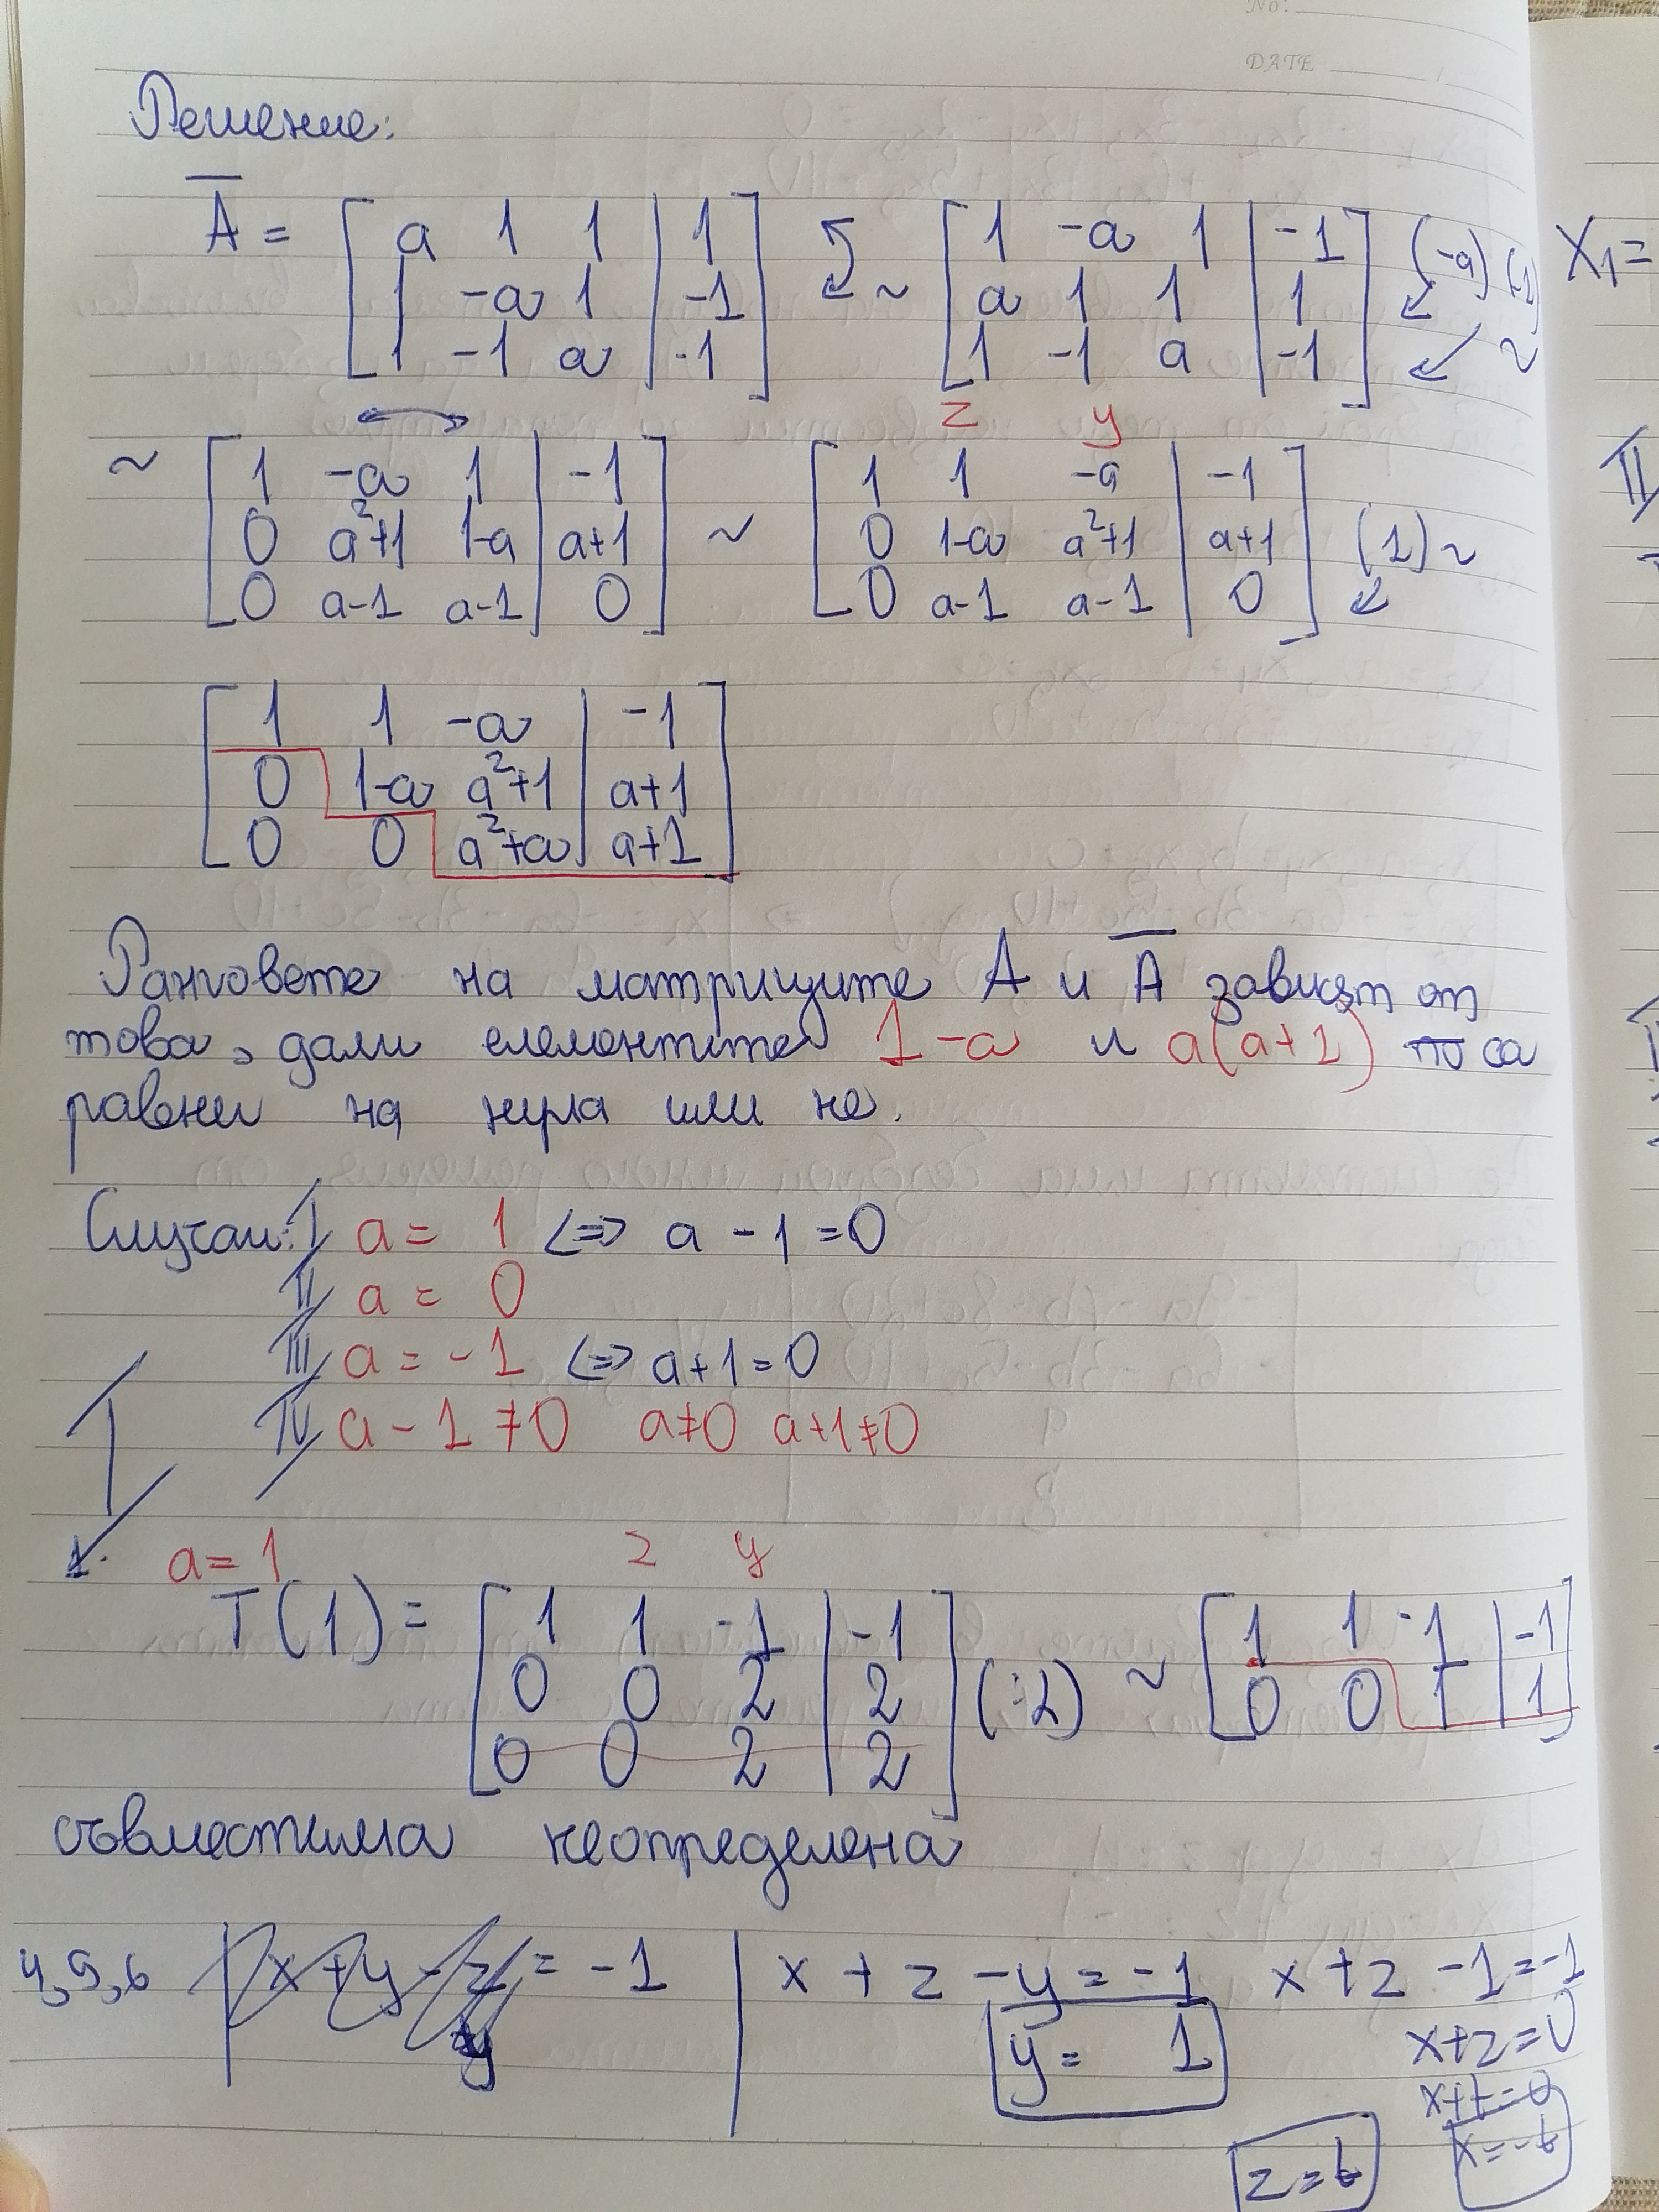 No:
DATE
Решение:
A̅ = [ a 1 1 | 1 ] ~ [ 1 -a 1 | -1 ] (-a) (-1)
[ 1 -a 1 | -1 ] [ a 1 1 | 1 ]
[ 1 -1 a | -1 ] [ 1 -1 a | -1 ] ~
z y
~ [ 1 -a 1 | -1 ] ~ [ 1 1 -a | -1 ]
[ 0 a²+1 1-a | a+1 ] [ 0 1-a a²+1 | a+1 ] (1) ~
[ 0 a-1 a-1 | 0 ] [ 0 a-1 a-1 | 0 ]
[ 1 1 -a | -1 ]
[ 0 1-a a²+1 | a+1 ]
[ 0 0 a²+a | a+1 ]
Ранговете на матриците A и A̅ зависят от
това, дали елементите 1-a и a(a+1) са
равни на нула или не.
Случаи: I/ a = 1 <=> a - 1 = 0
II/ a = 0
III/ a = -1 <=> a+1=0
IV/ a - 1 ≠ 0 a≠0 a+1≠0
I/
a = 1 z y
T(1) = [ 1 1 -1 | -1 ] ~ [ 1 1 -1 | -1 ]
[ 0 0 2 | 2 ] (:2) [ 0 0 1 | 1 ]
[ 0 0 2 | 2 ]
съвместима неопределена
4,5,6 | x + y - z = -1 | x + z - y = -1 x + z - 1 = -1
y y = 1 x+z=0
x+t=0
z = t x = -t
X₁=
II